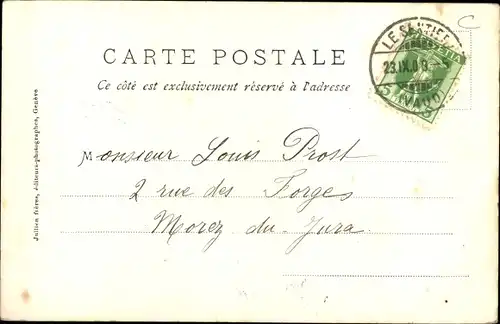 CARTE POSTALE
Ce côté est exclusivement réservé à l'adresse
LE SENTIER
23.IX.03
(VAUD)
HELVETIA
5
C
Monsieur Louis Prost
2 rue des Forges
Morez du Jura.
Jullien frères, éditeurs-photographes, Genève